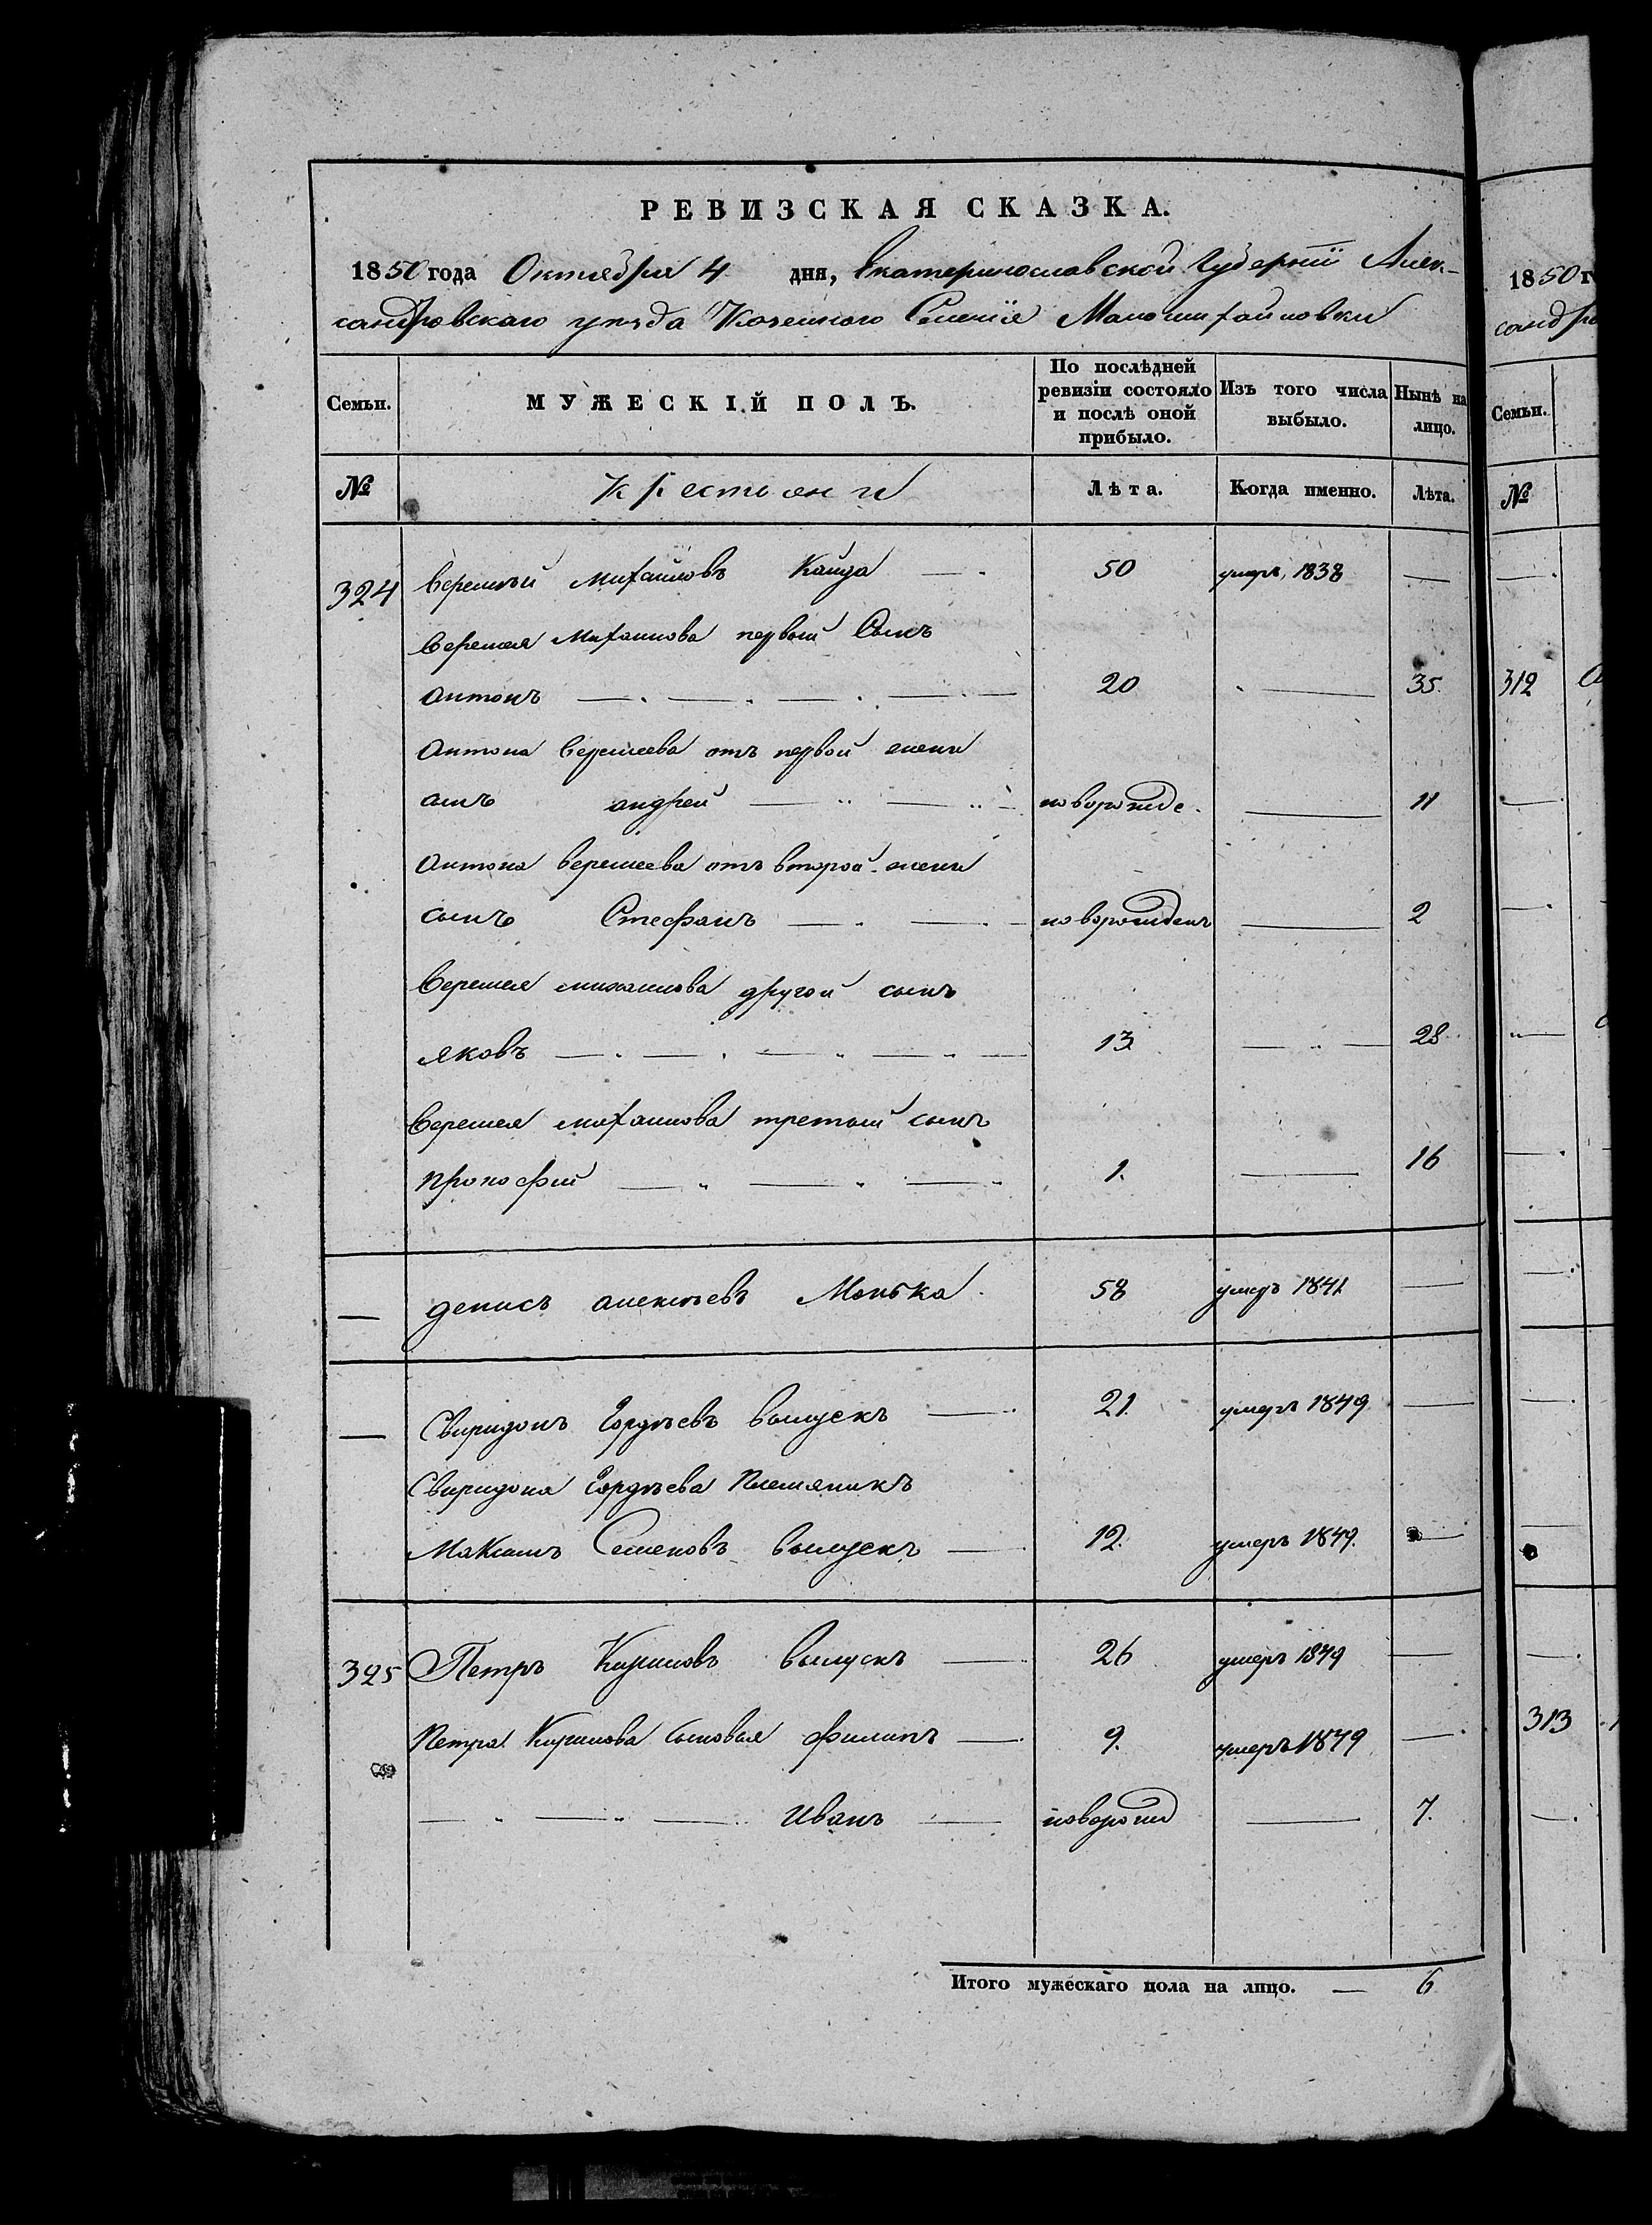 РЕВИЗСКАЯ СКАЗКА.
1850 года Октября 4 дня, Екатеринославской Губернии Алек-
сандровскаго уѣзда Казеннаго Селенія Маломихайловки
Семьи. МУЖЕСКІЙ ПОЛЪ. По послѣдней ревизіи состояло и послѣ оной прибыло. Изъ того числа выбыло. Нынѣ на лицо.
№ Крестьяни Лѣта. Когда именно. Лѣта.
324 Еремѣй Михайловъ Кайда — 50 умеръ, 1838 —
Еремея Михайлова первый Сынъ
Антонъ — 20 — 35
Антона Еремеева отъ первой жены
сынъ андрей — новорожде. — 11
Антона Еремеева отъ второй жены
сынъ Стефанъ — новорожденъ — 2
Еремея михайлова другой сынъ
яковъ — 13 — 28
Еремея михайлова третий сынъ
прокофий — 1. — 16
— денисъ алексѣевъ 58 умеръ 1841 —
— Свиридонъ Гордѣевъ — 21. умеръ 1849 —
Свиридона Гордѣева Племяникъ
Максимъ Семеновъ — 12. умеръ 1849. —
325 Петръ Кириловъ — 26 умеръ 1849 —
Петра Кирилова сыновья филипъ — 9. умеръ 1849 —
— Иванъ — новорожд — 7.
Итого мужескаго пола на лицо. — 6
1850 г
санд
Семьи.
№
312
313